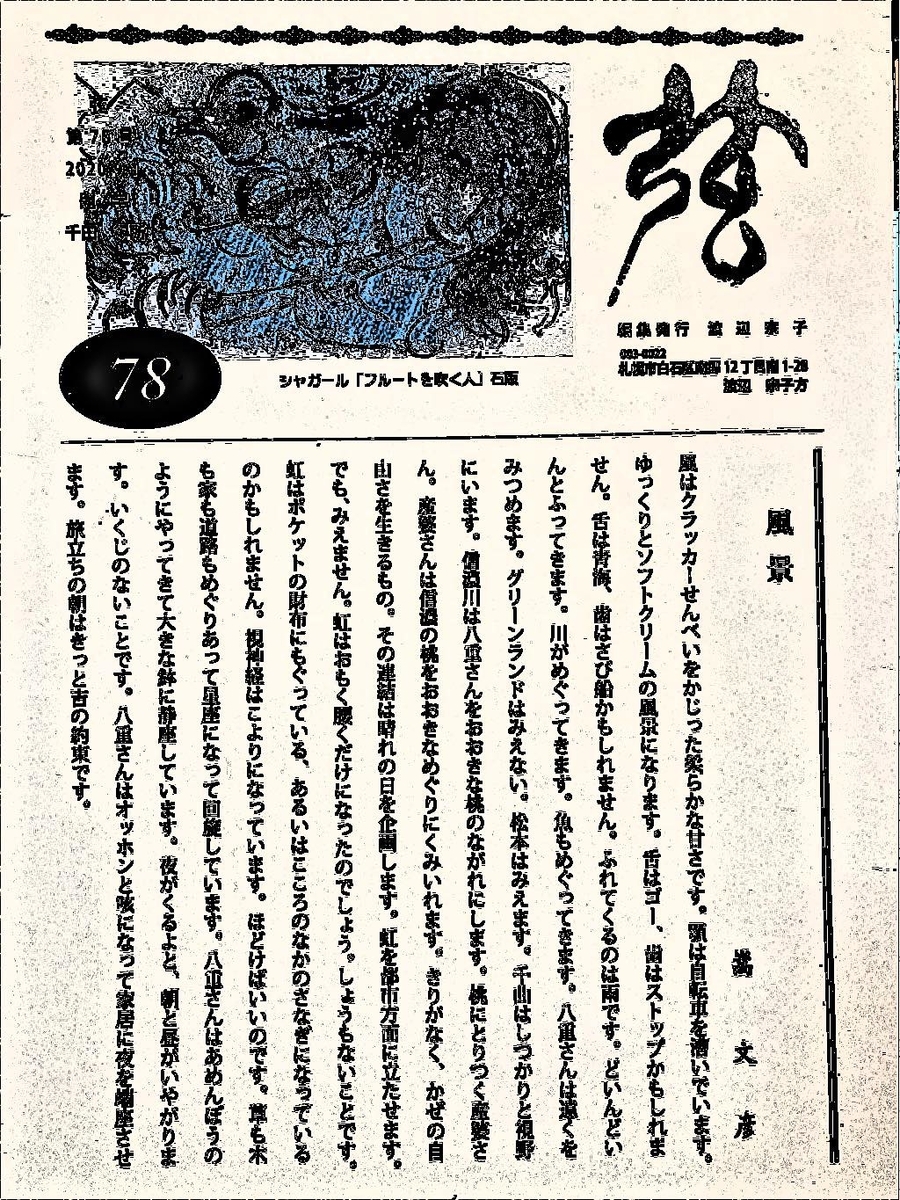 弦
編集発行 渡辺宗子
札幌市白石区 12丁目南1-28
渡辺 宗子方
2020
千田
78
シャガール「フルートを吹く人」石版
風景
嵩文彦
風はクラッカーせんべいをかじった柔らかな甘さです。顎は自転車を漕いでいます。
ゆっくりとソフトクリームの風景になります。舌はゴー、歯はストップかもしれま
せん。舌は青海、歯はさび船かもしれません。ふれてくるのは雨です。どいんどい
んとふってきます。川がめぐってきます。魚もめぐってきます。八重さんは遠くを
みつめます。グリーンランドはみえない。松本はみえます。千曲はしっかりと視野
にいます。信濃川は八重さんをおおきな桃のながれにします。桃にとりつく産婆さ
ん。産婆さんは信濃の桃をおおきなめぐりにくみいれます。きりがなく、かぜの自
由さを生きるもの。その連結は晴れの日を企画します。虹を都市方面に立たせます。
でも、みえません。虹はおもく腰くだけになったのでしょう。しょうもないことです。
虹はポケットの財布にもぐっている、あるいはこころのなかのさなぎになっている
のかもしれません。視神経はこよりになっています。ほどけばいいのです。草も木
も家も道路もめぐりあって星座になって回旋しています。八重さんはあめんぼうの
ようにやってきて大きな鉢に静座しています。夜がくるよと、朝と昼がいやがりま
す。いくじのないことです。八重さんはオッホンと咳になって家居に夜を端座させ
ます。旅立ちの朝はきっと吉の約束です。